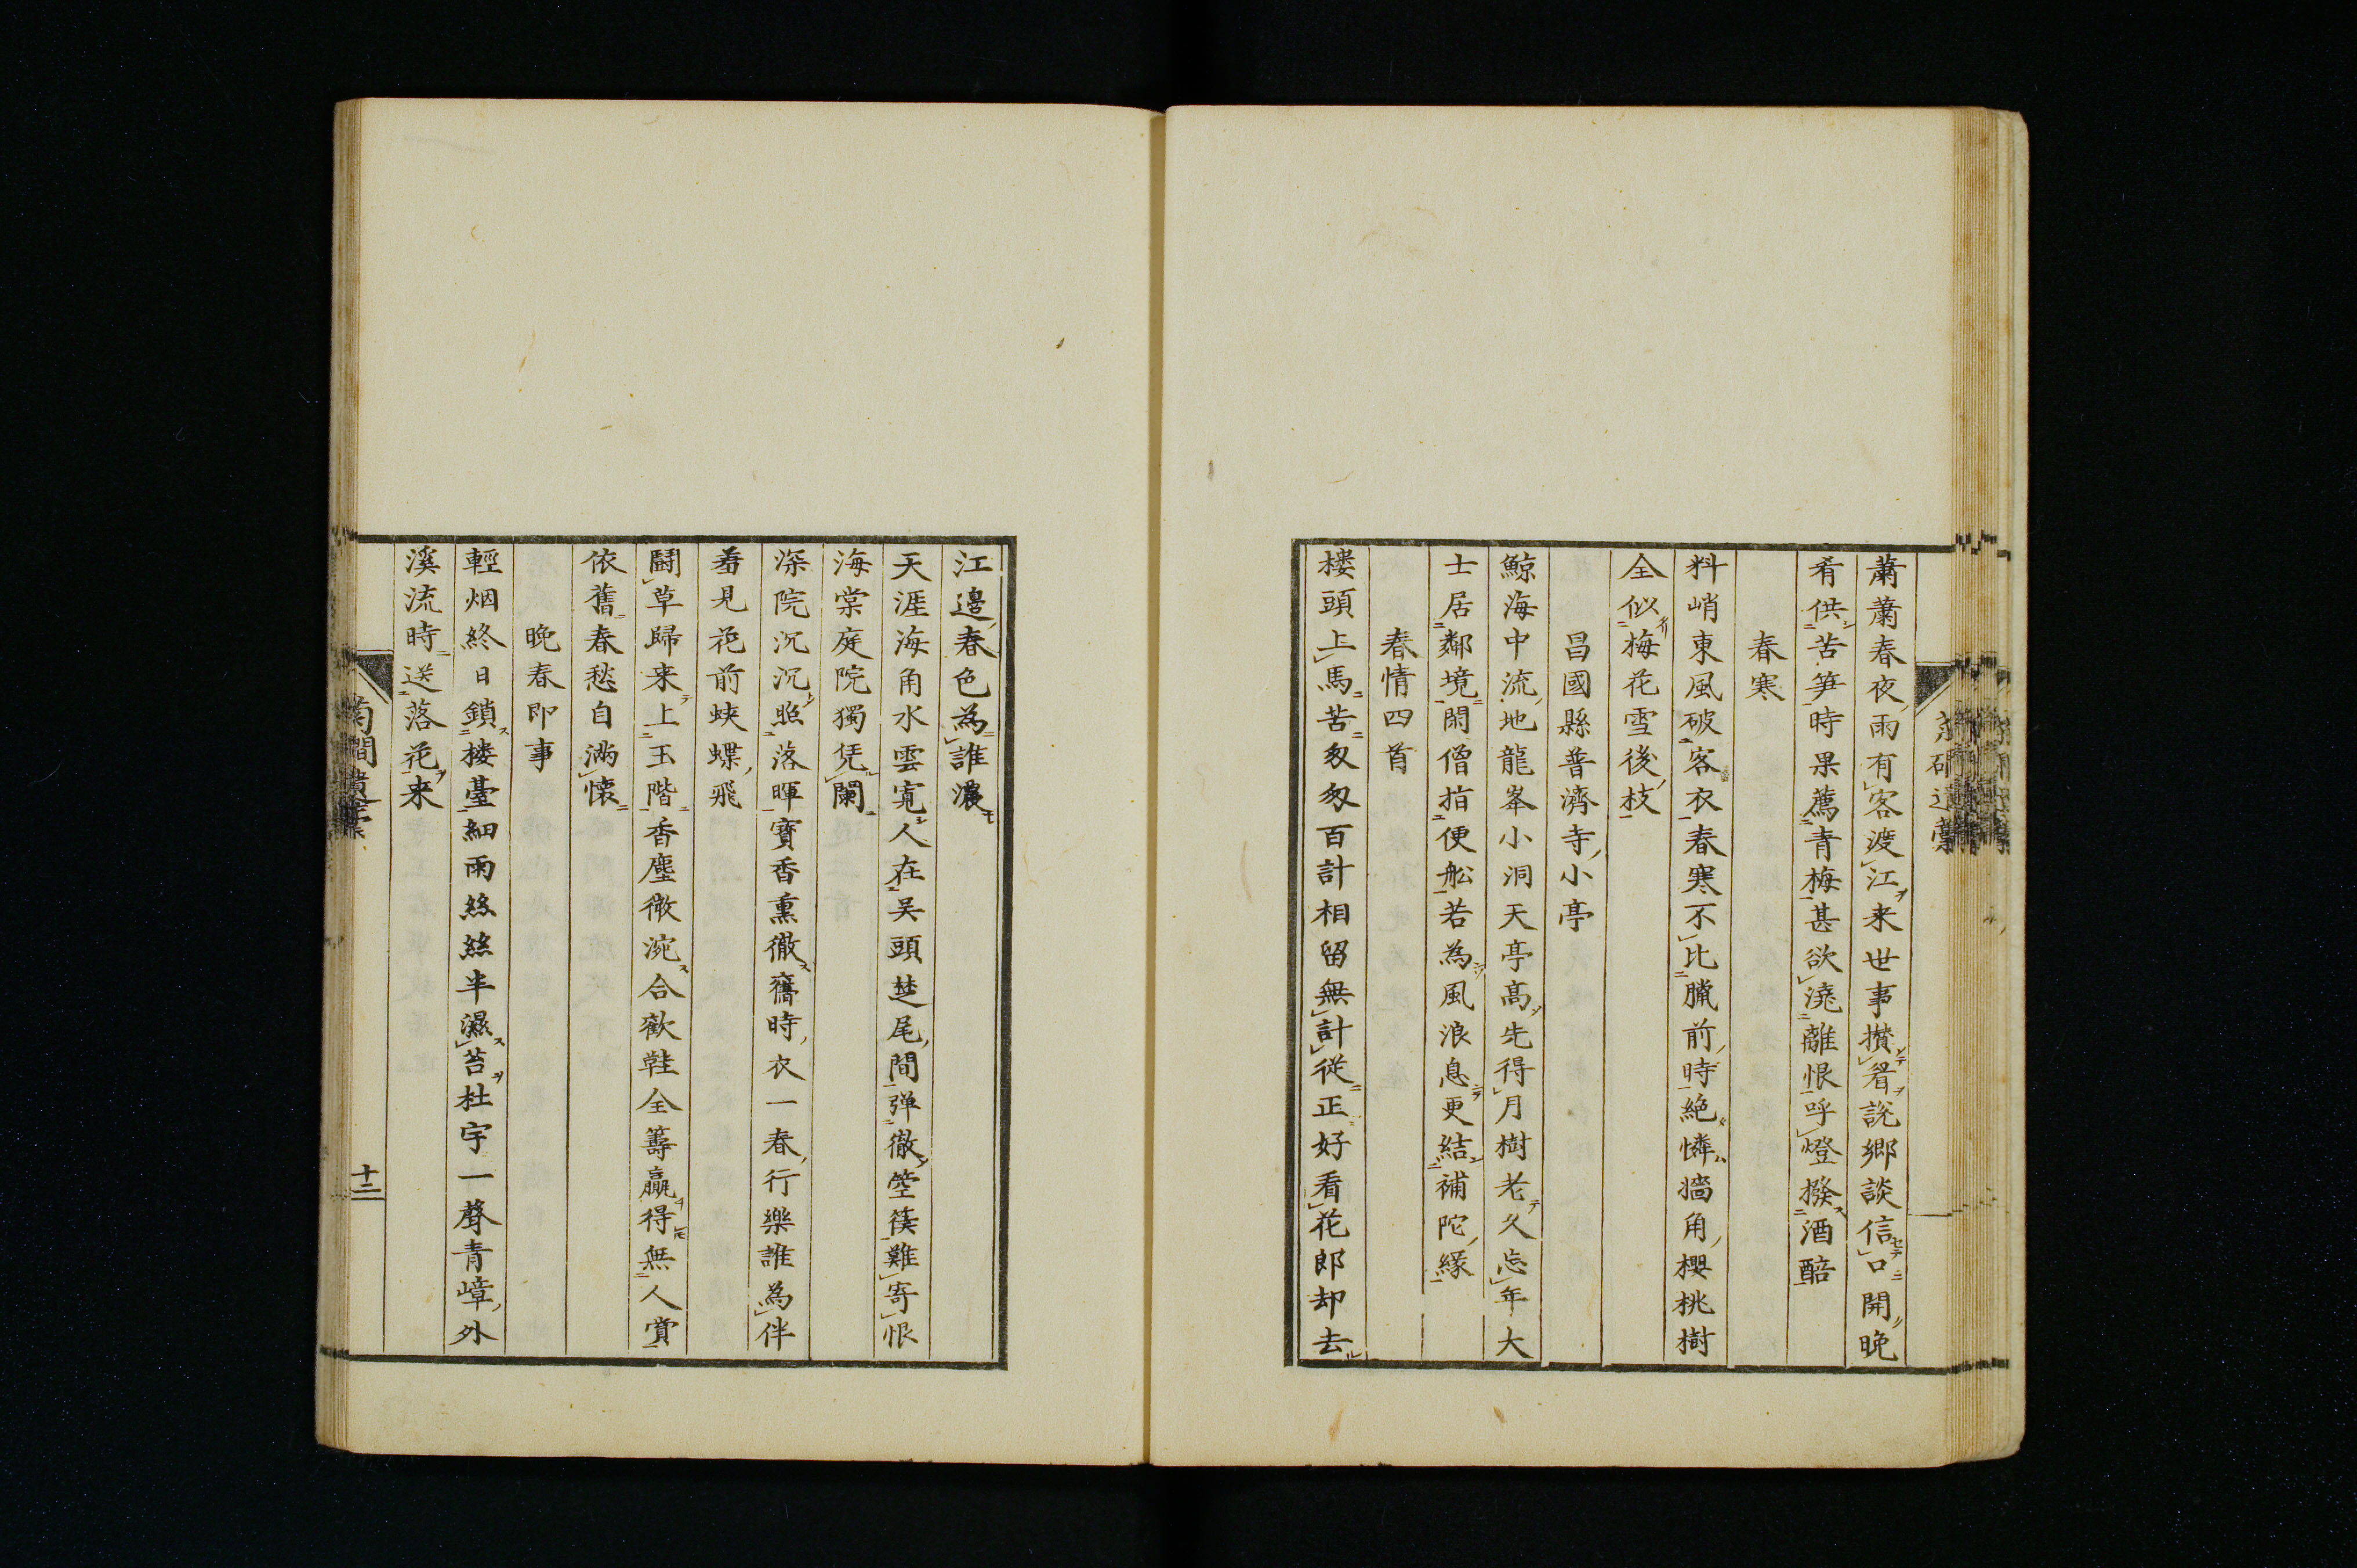 蕭蕭春夜雨有客渡江来世事攅眉說郷談信口開晚
肴供苦笋時果薦青梅甚欲澆離恨呼燈撥酒醅
春寒
料峭東風破客衣春寒不比臘前時絶憐牆角櫻桃樹
全似梅花雪後枝
昌國縣普濟寺小亭
鯨海中流地龍峯小洞天亭高先得月樹老久忘年大
士居鄰境閑僧指便舩若為風浪息更結補陀緣
春情四首
楼頭上馬苦匆匆百計相留無計従正好看花郎却去
江邊春色為誰濃
天涯海角水雲寛人在吴頭楚尾間弹徹箜篌難寄恨
海棠庭院獨凭闌
深院沉沉照落暉寶香熏徹舊時衣一春行樂誰為伴
羞見花前蛺蝶飛
鬪草歸来上玉階香塵微涴合歡鞋全籌贏得無人賞
依舊春愁自満懷
晚春即事
輕烟終日鎖楼臺細雨絲絲半濕苔杜宇一聲青嶂外
溪流時送落花来
十二